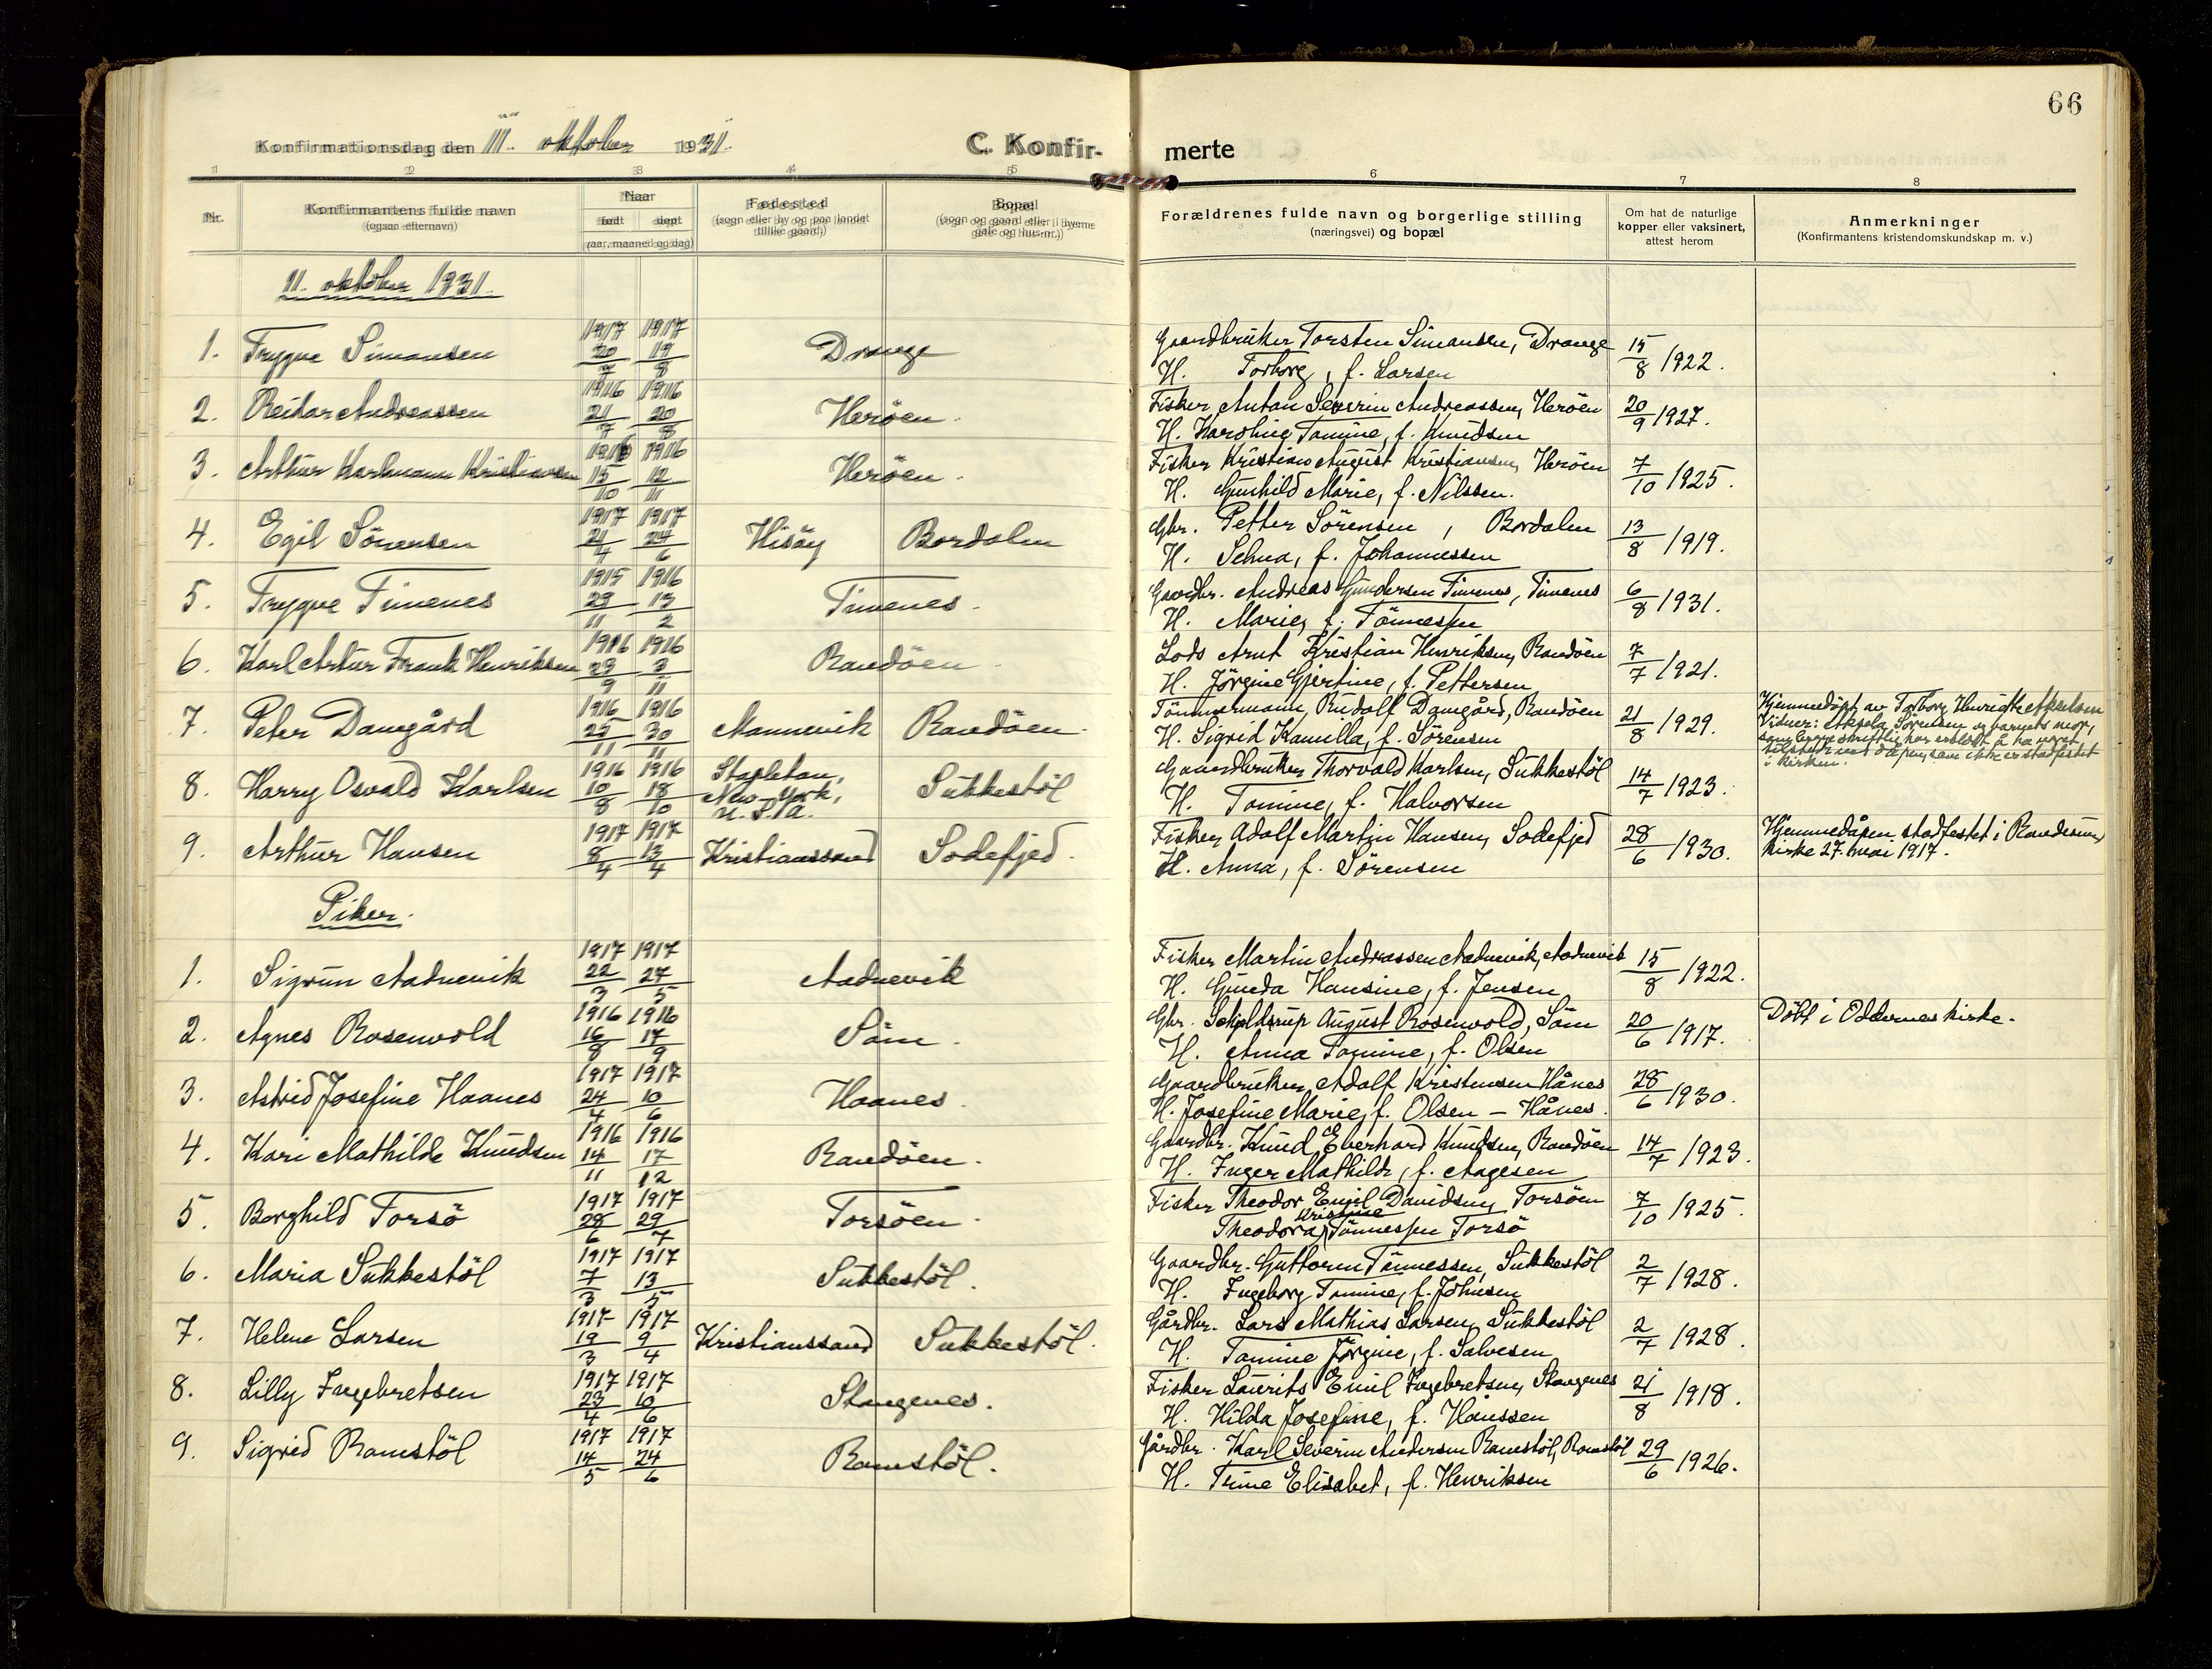 66
Konfirmationsdag den 11. oktober 1931.
C. Konfir-merte
1 2 3 4 5 6 7 8
Nr.
Konfirmantens fulde navn
(ogsaa efternavn)
Naar
født døpt
(aar, maaned og dag)
Fødested
(sogn eller by og paa landet
tillike gaard)
Bopæl
(sogn og gaard eller i byerne
gate og hus-nr.)
Forældrenes fulde navn og borgerlige stilling
(næringsvei) og bopæl
Om hat de naturlige
kopper eller vaksinert,
attest herom
Anmerkninger
(Konfirmantens kristendomskundskap m. v.)
11. oktober 1931.
1. Trygve Simonsen 1917 20/7 1917 19/8 Drange Gaardbruker Torsten Simonsen, Drange 15/8 1922.
H. Torborg, f. Larsen
2. Reidar Andreassen 1916 21/7 1916 20/8 Heröen. Fisker Anton Severin Andreassen, Heröen 20/9 1927.
H. Karoline Tomine, f. Knudsen
3. Arthur Karlmann Kristiansen 1916 15/10 1916 12/11 Heröen. Fisker Kristian August Kristiansen, Heröen 7/10 1925.
H. Gunhild Marie, f. Nilssen.
4. Egil Sörensen 1917 21/4 1917 24/6 Hisöy Bordalen Gbr. Petter Sörensen, Bordalen 13/8 1919.
H. Selma, f. Johannessen
5. Trygve Timenes 1915 29/11 1916 13/2 Timenes. Gaardbr. Andreas Gundersen Timenes, Timenes 6/8 1931.
H. Marie, f. Tönnessen
6. Karl Artur Frank Henriksen 1916 29/9 1916 3/11 Randöen. Lods Arnt Kristian Henriksen, Randöen 7/7 1921.
H. Jörgine Gjertine, f. Pettersen
7. Peter Damgård 1916 25/11 1916 30/11 Mannevik Randöen. Tömmermann, Rudolf Damgård, Randöen 21/8 1929.
H. Sigrid Kamilla, f. Sörensen
Hjemmedöpt av Torborg Henriette Akselsen
Vidner: Aksela Sörensen og barnets mor,
som begge skriftlig har erklært å ha været
tilstede ved dåpen, som ikke er stadfestet
i kirken.
8. Harry Osvald Karlsen 1916 10/8 1916 18/10 Stapleton,
New York,
U.S.A. Sukkestöl Gaardbruker Thorvald Karlsen, Sukkestöl 14/7 1923.
H. Tomine, f. Halvorsen
9. Arthur Hansen 1917 8/4 1917 13/4 Kristianssand Sodefjed. Fisker Adolf Martin Hansen, Sodefjed 28/6 1930.
H. Anna, f. Sörensen
Hjemmedåpen stadfestet i Randesund
kirke 27. mai 1917.
Piker.
1. Sigrun Aadnevik 1917 22/3 1917 27/5 Aadnevik Fisker Martin Andreassen Aadnevik, Aadnevik 15/8 1922.
H. Gunda Hansine, f. Jensen
2. Agnes Rosenvold 1916 16/8 1916 17/9 Söm. Gbr. Schjeldrup August Rosenvold, Söm 20/6 1917.
H. Anna Tomine, f. Olsen
Döbt i Oddernes kirke.
3. Astrid Josefine Haanes 1917 24/4 1917 10/6 Haanes. Gaardbruker, Adolf Kristensen Hånes 28/6 1930.
H. Josefine Marie, f. Olsen - Hånes.
4. Kari Mathilde Knudsen 1916 14/11 1916 17/12 Randöen. Gaardbr. Knud Eberhard Knudsen, Randöen 14/7 1923.
H. Inger Mathilde, f. Aagesen
5. Borghild Torsö 1917 28/6 1917 29/7 Torsöen. Fisker Theodor Emil Davidsen, Torsöen 7/10 1925.
Kristine
Theodora Tönnessen Torsö
6. Maria Sukkestöl 1917 7/3 1917 13/5 Sukkestöl. Gaardbr. Guttorm Tönnessen, Sukkestöl 2/7 1928.
H. Ingeborg Tomine, f. Johnsen
7. Helene Larsen 1917 19/3 1917 9/4 Kristianssand Sukkestöl. Gårdbr. Lars Mathias Larsen, Sukkestöl 2/7 1928.
H. Tomine Jörgine, f. Salvesen
8. Lilly Ingebretsen 1917 23/4 1917 10/6 Stangenes. Fisker Laurits Emil Ingebretsen, Stangenes 21/8 1918.
H. Hilda Josefine, f. Hanssen
9. Sigrid Ramstöl 1917 14/5 1917 24/6 Ramstöl. Gårdbr. Karl Severin Andersen Ramstöl, Ramstöl 29/6 1926.
H. Trine Elisabet, f. Henriksen